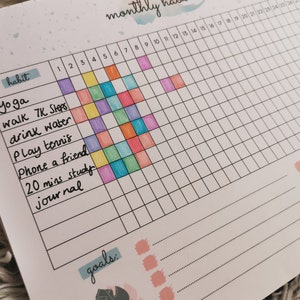 monthly hab
habit 1 2 3 4 5 6 7 8 9 10 11 12 13
yoga
walk 7k steps
drink water
play tennis
phone a friend
20 mins study
journal
goals: